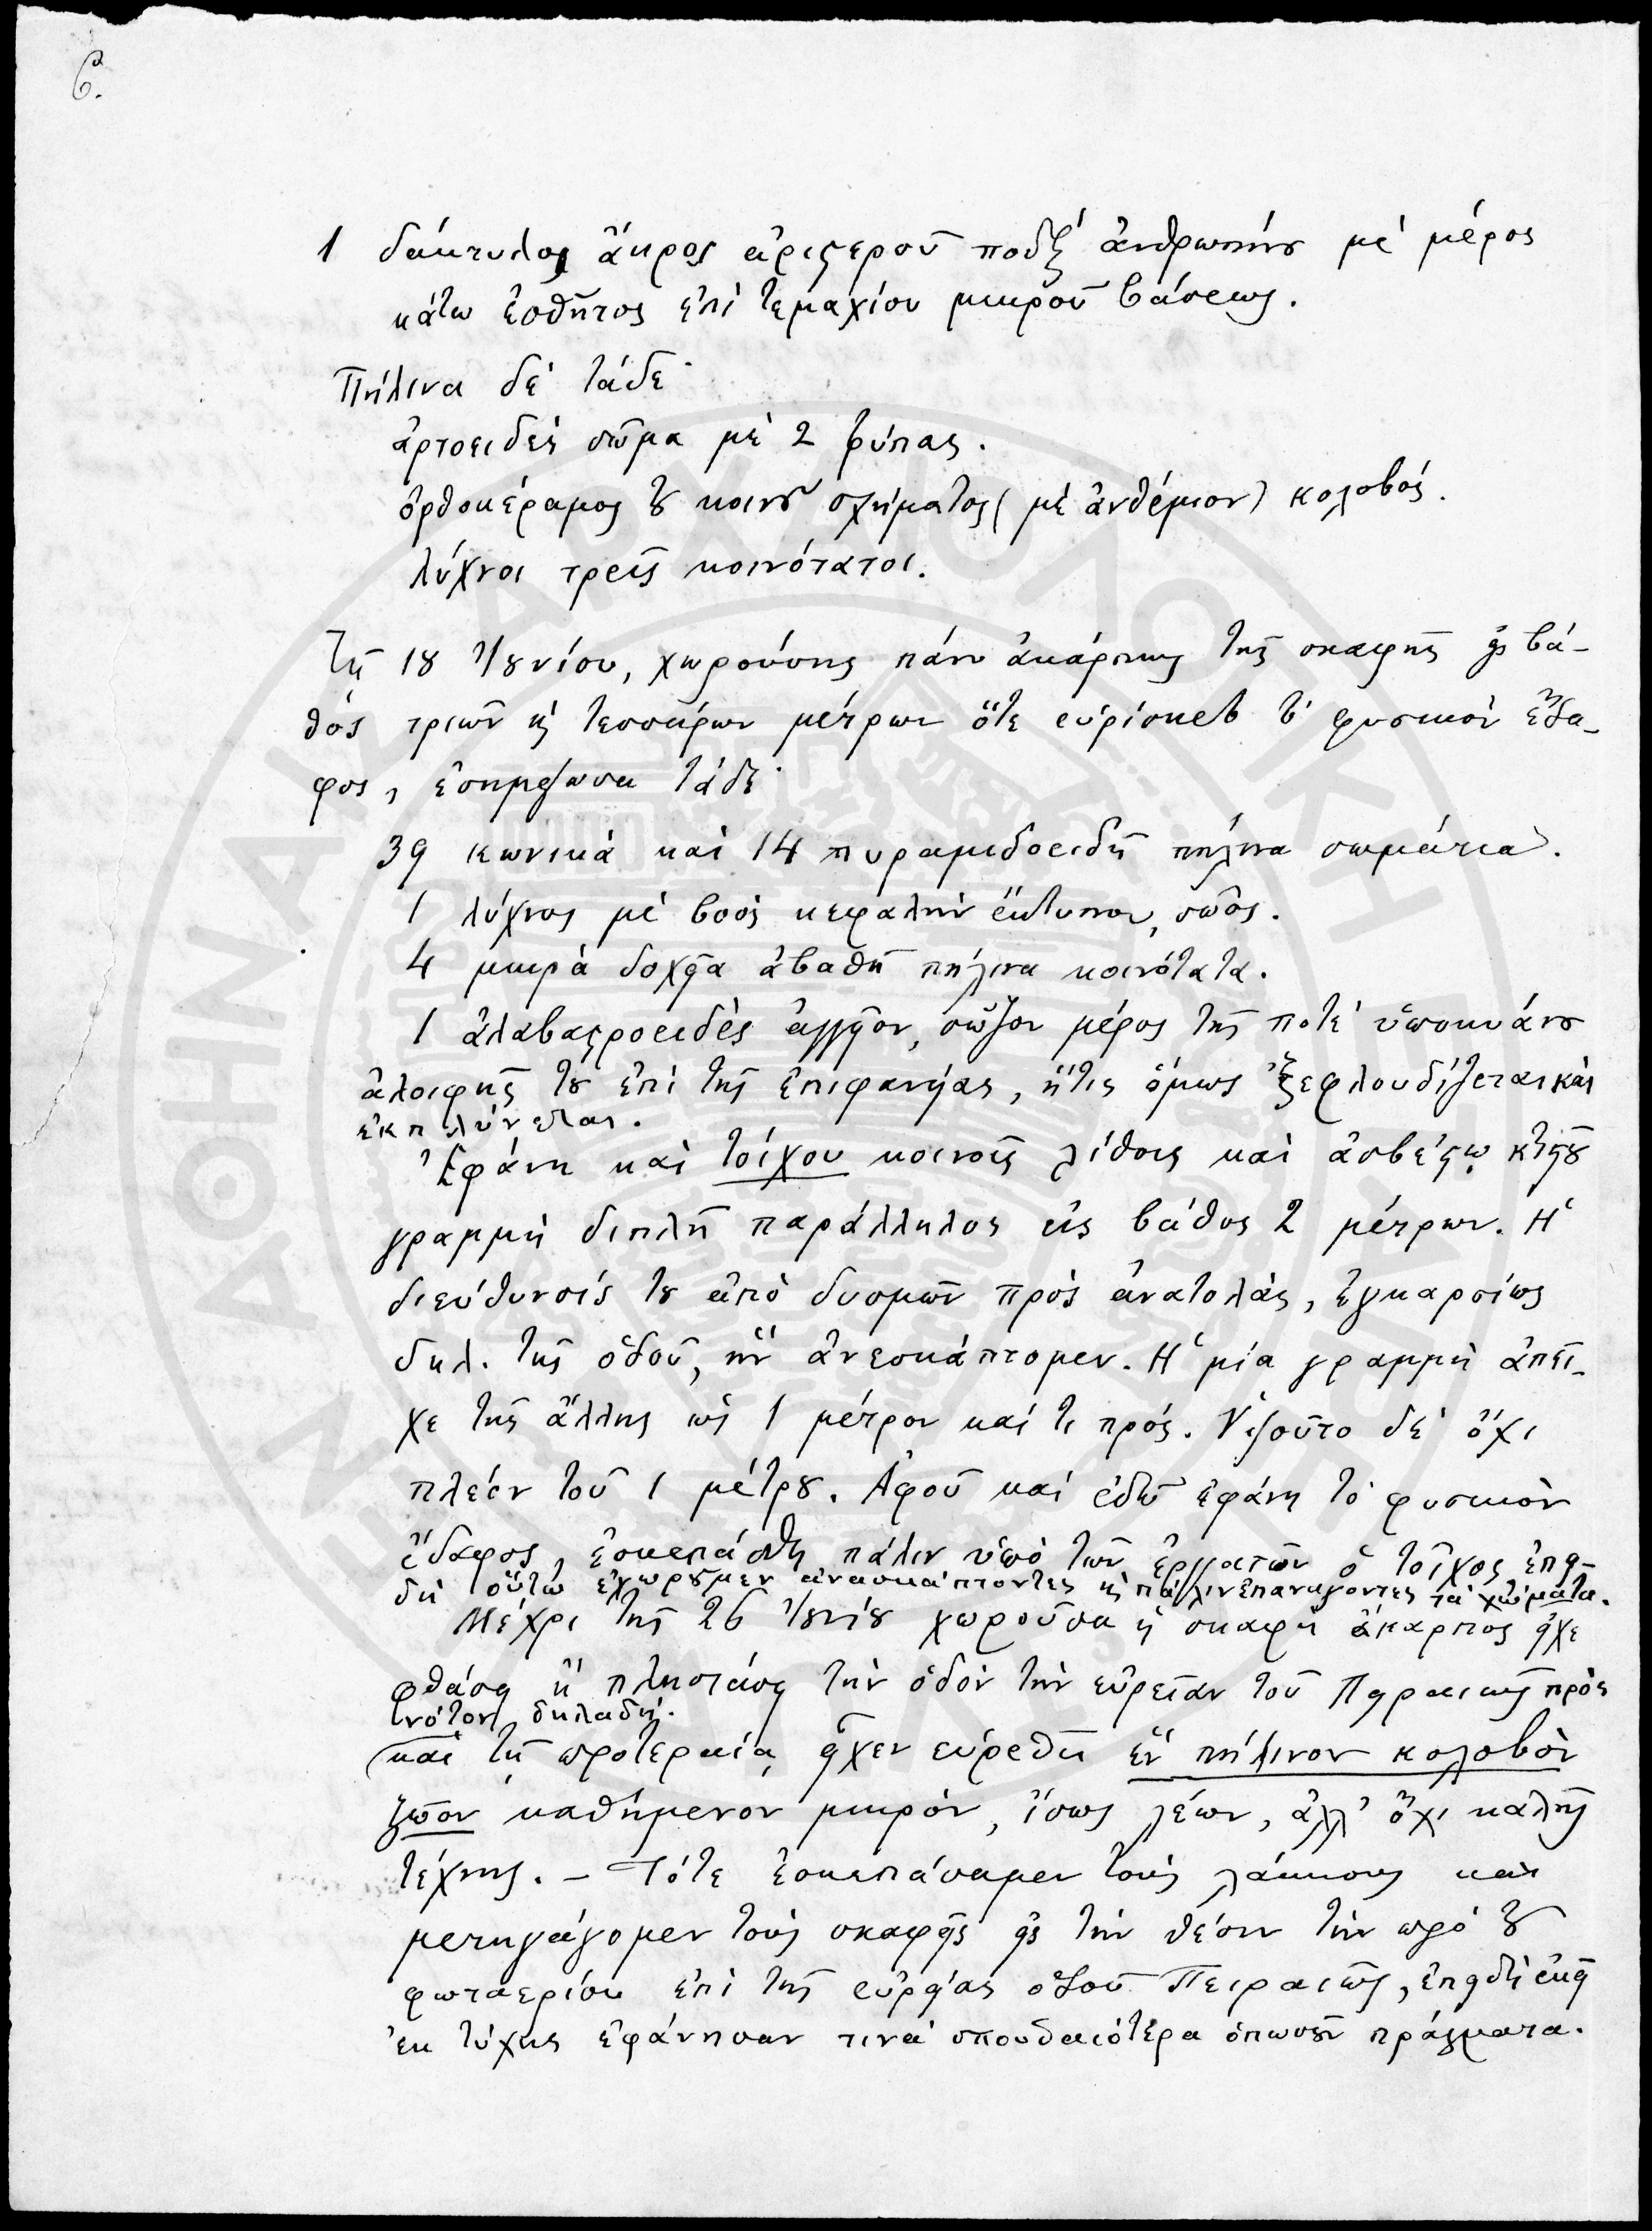 6.
1 δάκτυλος ἄκρος ἀριστεροῦ ποδὸς ἀνθρωπίνου μὲ μέρος
κάτω ἐσθῆτος ἐπὶ τεμαχίου μικροῦ βάσεως.
Πήλινα δὲ τάδε·
ἀρτοειδὲς σῶμα μὲ 2 τρύπας.
ὀρθοκέραμος τοῦ κοινοῦ σχήματος (μὲ ἀνθέμιον) κολοβός.
λύχνοι τρεῖς κοινότατοι.
Τῇ 18 Ἰουνίου, χωρούσης πάνυ ἀκάρπως τῆς σκαφῆς εἰς βά-
θος τριῶν καὶ τεσσάρων μέτρων ὅτε εὑρίσκετο τὸ φυσικὸν ἔδα-
φος, ἐσημείωσα τάδε·
39 κωνικὰ καὶ 14 πυραμιδοειδῆ πήλινα σωμάτια.
1 λύχνος μὲ βοὸς κεφαλὴν ἔκτυπον, σῶος.
4 μικρὰ δοχεῖα ἀβαθῆ πήλινα κοινότατα.
1 ἀλαβαστροειδὲς ἀγγεῖον, σῶζον μέρος τῆς ποτὲ ὑποκυάνου
ἀλοιφῆς του ἐπὶ τῆς ἐπιφανείας, ἥτις ὅμως ξεφλουδίζεται καὶ
ἐκπλύνεται.
Ἐφάνη καὶ τοίχου κοινοῖς λίθοις καὶ ἀσβέστῳ κτιστοῦ
γραμμὴ διπλῆ παράλληλος εἰς βάθος 2 μέτρων. Ἡ
διεύθυνσίς του ἀπὸ δυσμῶν πρὸς ἀνατολάς, ἐγκαρσίως
δηλ. τῆς ὁδοῦ, ἣν ἀνεσκάπτομεν. Ἡ μία γραμμὴ ἀπεῖ-
χε τῆς ἄλλης ὡς 1 μέτρον καί τι πρός. Ὑψοῦτο δὲ ὄχι
πλέον τοῦ 1 μέτρου. Ἀφοῦ καὶ ἐδῶ ἐφάνη τὸ φυσικὸν
ἔδαφος, ἐσκεπάσθη πάλιν ὑπὸ τῶν ἐργατῶν ὁ τοῖχος ἐπει-
δὴ οὕτω ἐχωροῦμεν ἀνασκάπτοντες καὶ πάλιν ἐπανάγοντες τὰ χώματα.
Μέχρι τῆς 26 Ἰουνίου χωροῦσα ἡ σκαφὴ ἄκαρπος εἶχε
φθάσει ἢ πλησιάσει τὴν ὁδὸν τὴν εὐρεῖαν τοῦ Πειραιῶς πρὸς
νότον δηλαδή.
καὶ τῇ προτεραίᾳ εἶχεν εὑρεθῆ ἓν πήλινον κολοβὸν
ζῷον καθήμενον μικρόν, ἴσως λέων, ἀλλ' ὄχι καλῆς
τέχνης. – Τότε ἐσκεπάσαμεν τοὺς λάκκους καὶ
μετηγάγομεν τοὺς σκαφεῖς εἰς τὴν θέσιν τὴν πρὸ τοῦ
φωταερίου ἐπὶ τῆς εὐρείας ὁδοῦ Πειραιῶς, ἐπειδὴ ἐκεῖ
ἐκ τύχης ἐφάνησαν τινὰ σπουδαιότερα ὁπωσοῦν πράγματα.
ΕΝ ΑΘΗΝΑΙΣ ΑΡΧΑΙΟΛΟΓΙΚΗ ΕΤΑΙΡΕΙΑ